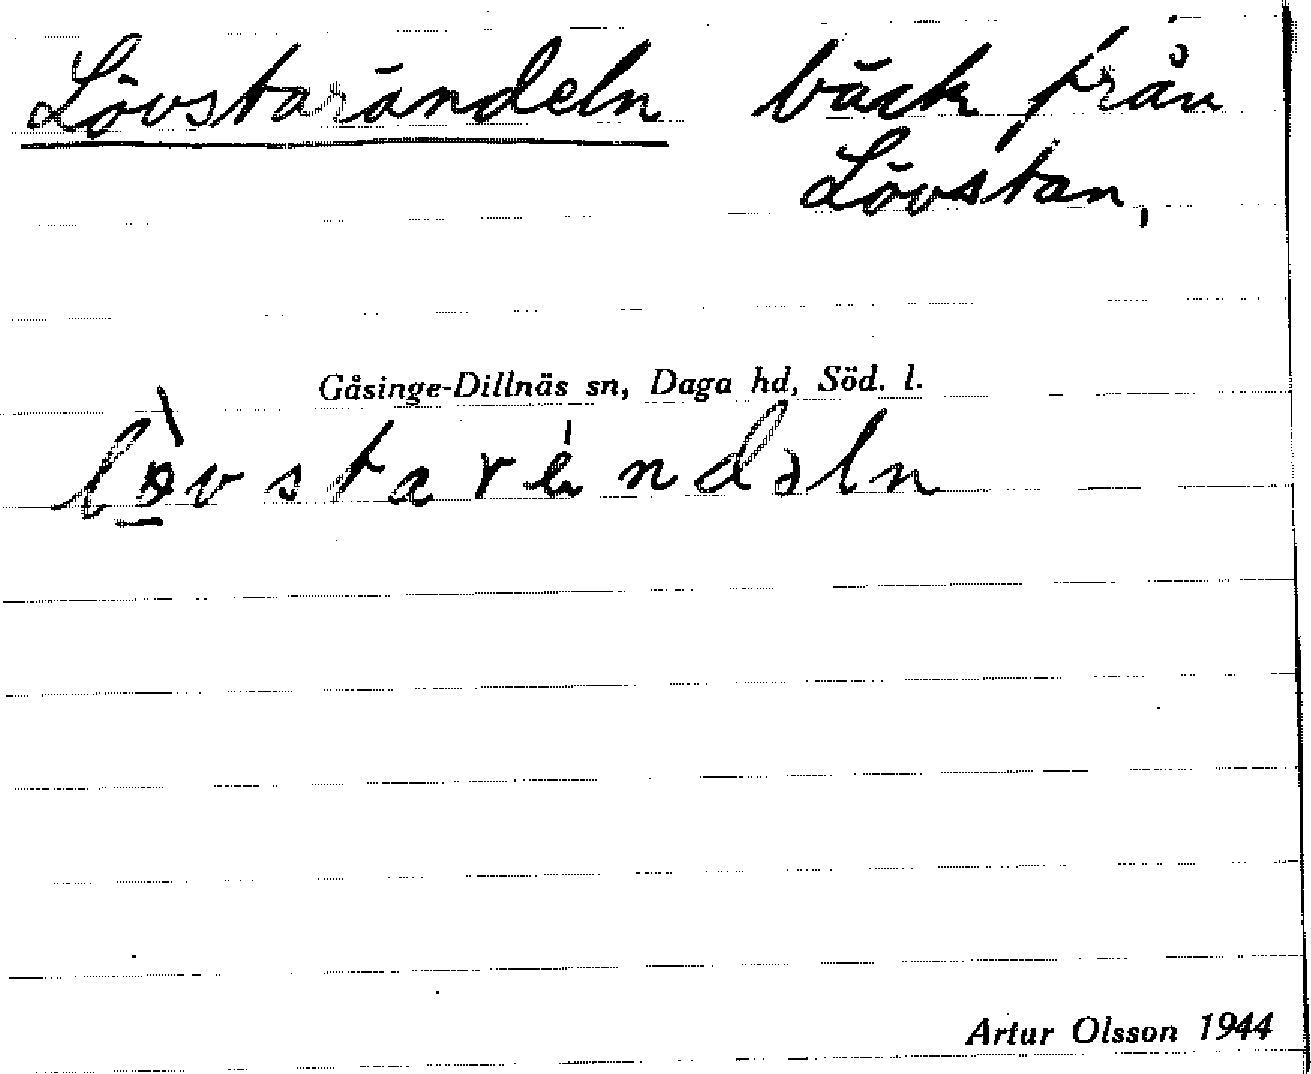 Lövstarändeln bäck från
Lövstan,
Gåsinge-Dillnäs sn, Daga hd, Söd. l.
Artur Olsson 1944